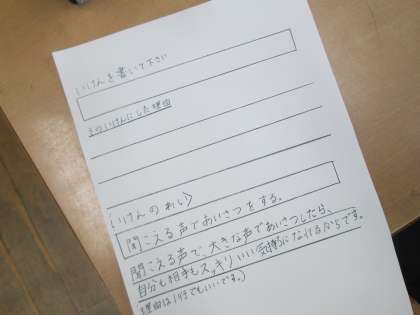 いけんを書いて下さい
そのいけんにした理由
(いけんのれい)
聞こえる声であいさつをする。
聞こえる声で、大きな声であいさつしたら、
自分も相手もスッキリいい気持ちになれるからです。
(理由は1行でもいいです。)